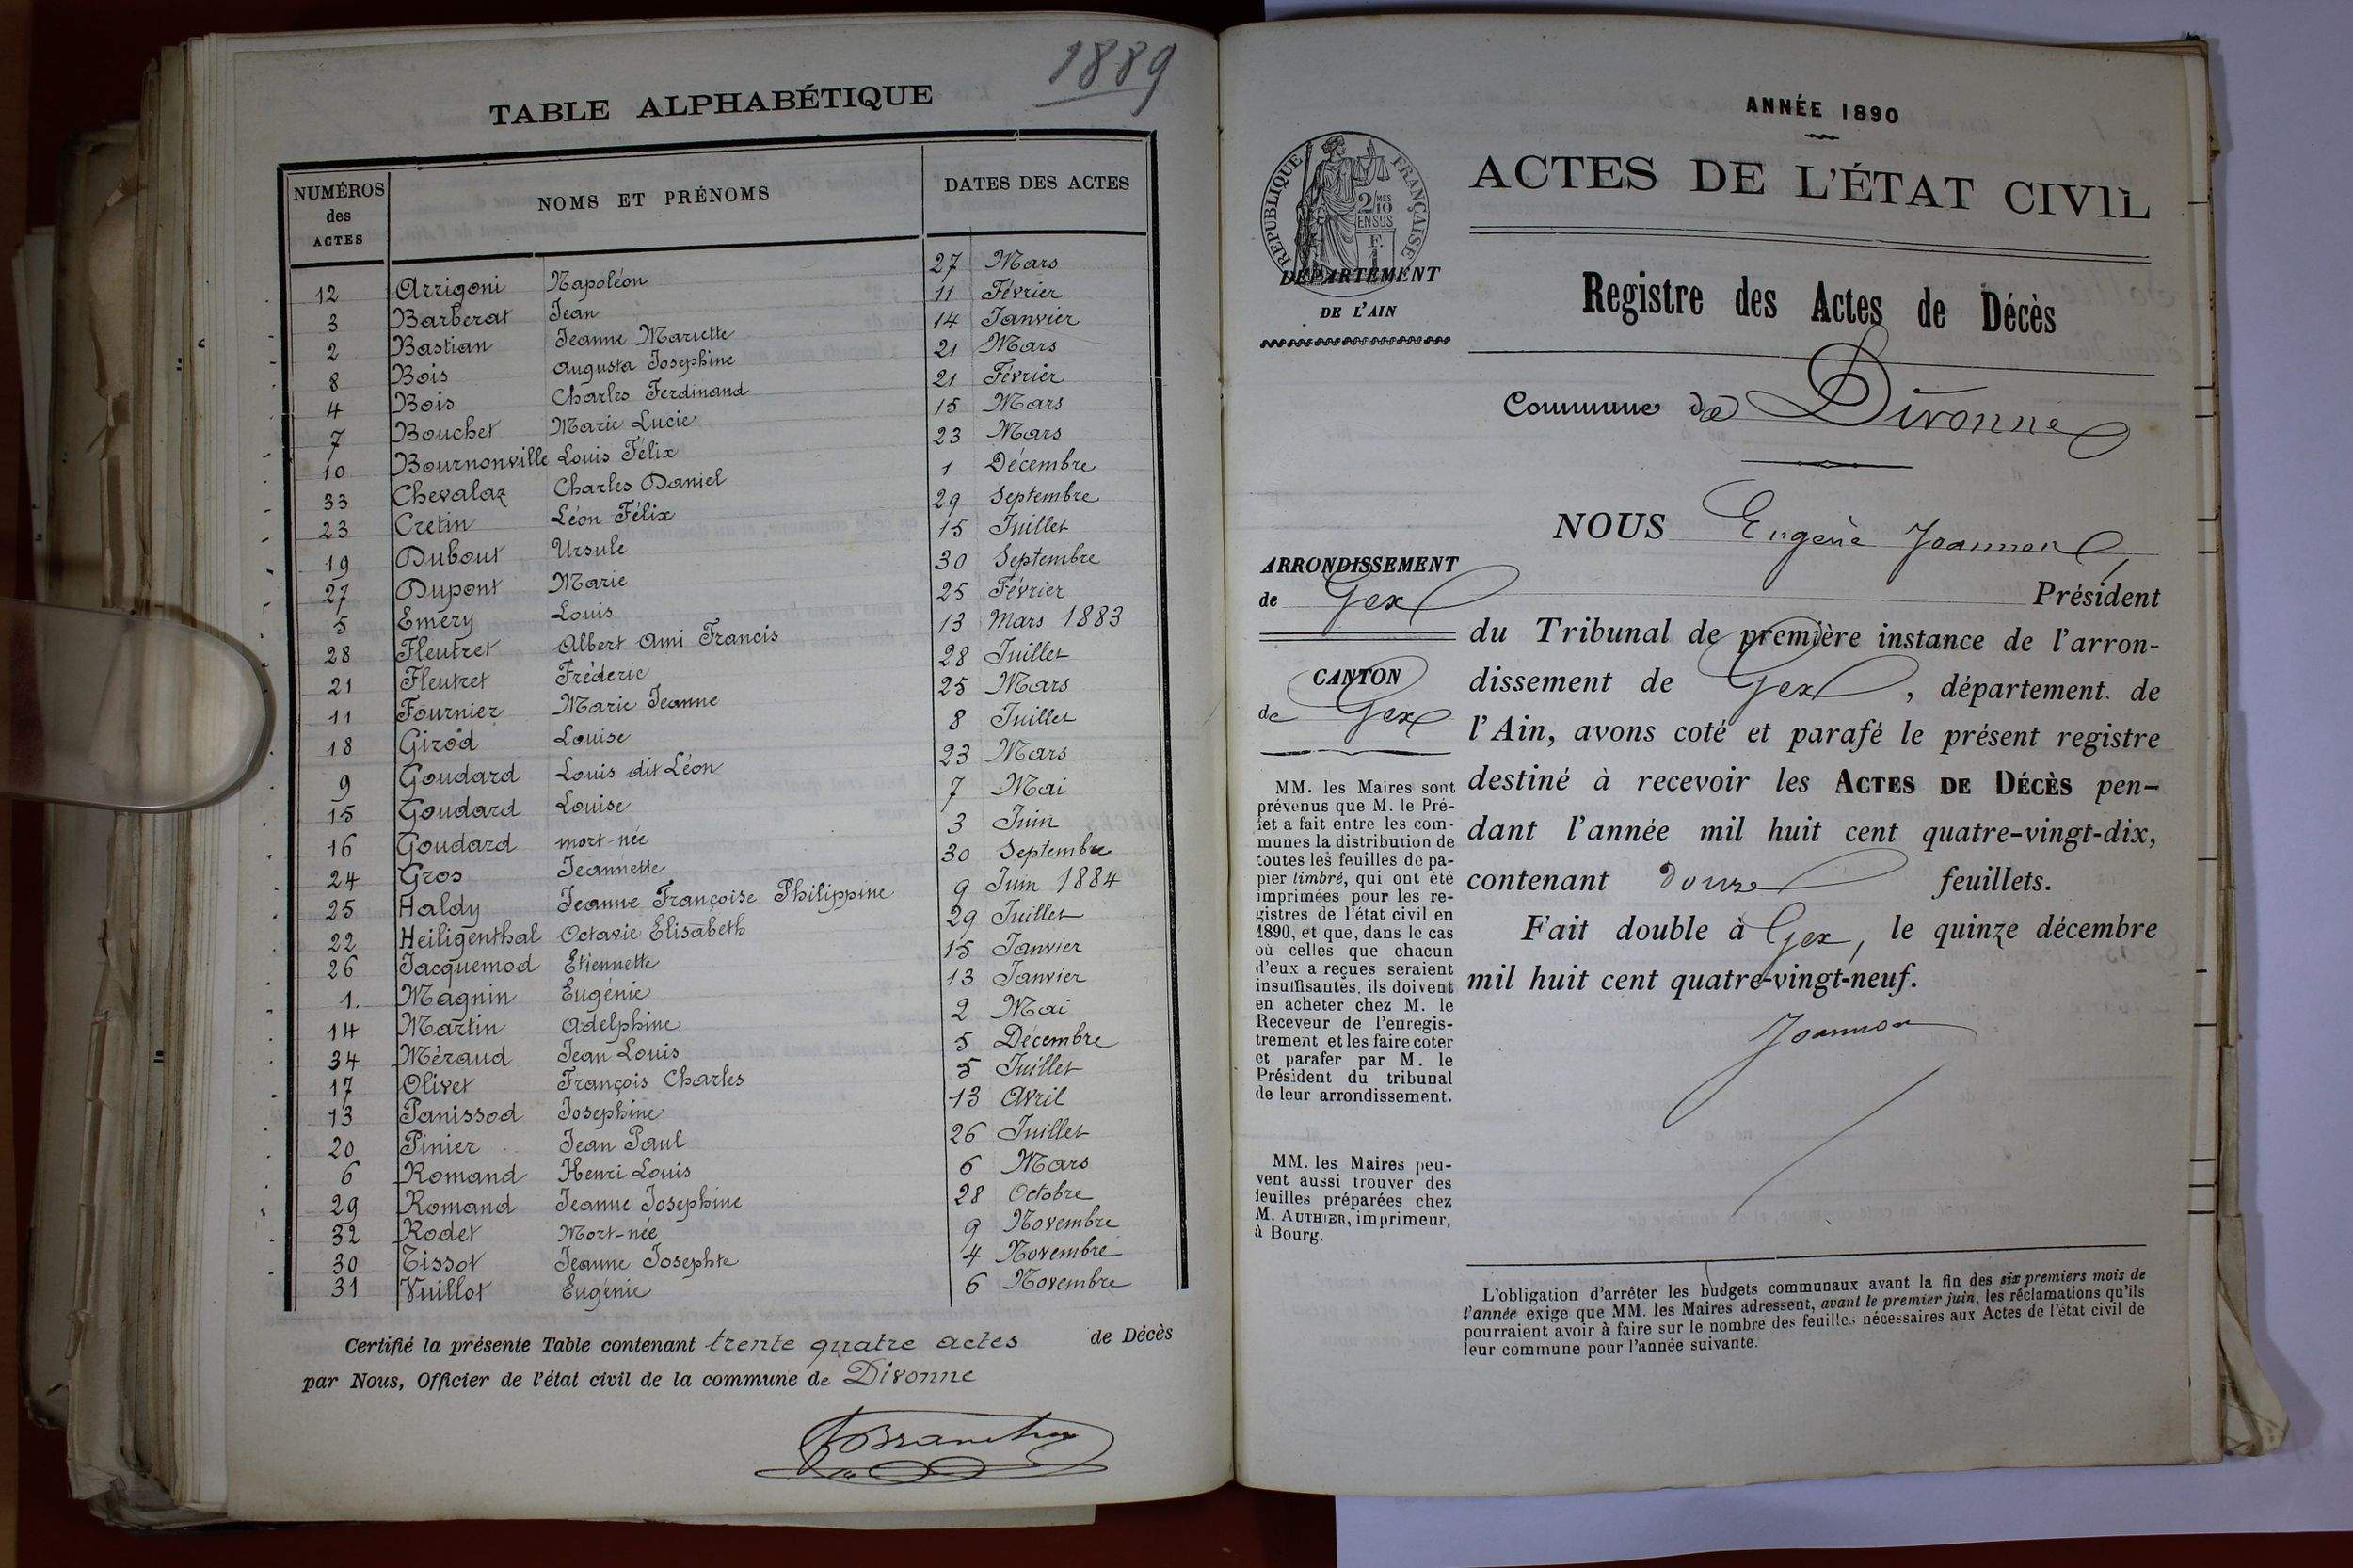 1889
TABLE ALPHABÉTIQUE
NUMÉROS des ACTES NOMS ET PRÉNOMS DATES DES ACTES
12 Arrigoni Napoléon 27 Mars
3 Barberat Jean 11 Février
2 Bastian Jeanne Mariette 14 Janvier
8 Bois Augusta Josephine 21 Mars
4 Bois Charles Ferdinand 21 Février
7 Bouchet Marie Lucie 15 Mars
10 Bournonville Louis Félix 23 Mars
33 Chevalaz Charles Daniel 1 Décembre
23 Cretin Léon Félix 29 Septembre
19 Dubout Ursule 15 Juillet
27 Dupont Marie 30 Septembre
5 Emery Louis 25 Février
28 Fleutret Albert Ami Francis 13 Mars 1883
21 Fleutret Fréderic 28 Juillet
11 Fournier Marie Jeanne 25 Mars
18 Girod Louise 8 Juillet
9 Goudard Louis dit Léon 23 Mars
15 Goudard Louise 7 Mai
16 Goudard mort-née 3 Juin
24 Gros Jeannette 30 Septembre
25 Haldy Jeanne Françoise Philippine 9 Juin 1884
22 Heiligenthal Octavie Elisabeth 29 Juillet
26 Jacquemod Etiennette 15 Janvier
1. Magnin Eugénie 13 Janvier
14 Martin Adelphine 2 Mai
34 Méraud Jean Louis 5 Décembre
17 Olivet François Charles 5 Juillet
13 Panissod Josephine 13 Avril
20 Pinier Jean Paul 26 Juillet
6 Romand Henri Louis 6 Mars
29 Romand Jeanne Josephine 28 Octobre
32 Rodet Mort-née 9 Novembre
30 Tissot Jeanne Josephte 4 Novembre
31 Vuillot Eugénie 6 Novembre
Certifié la présente Table contenant trente quatre actes de Décès
par Nous, Officier de l'état civil de la commune de Divonne
ANNÉE 1890
RÉPUBLIQUE FRANÇAISE
2/10 MES
EN SUS
F.
1
ACTES DE L'ÉTAT CIVIL
DÉPARTEMENT
DE L'AIN
Registre des Actes de Décès
Commune de Divonne
NOUS Eugène Joannon,
Président
du Tribunal de première instance de l'arron-
dissement de Gex, département de
l'Ain, avons coté et parafé le présent registre
destiné à recevoir les ACTES DE DÉCÈS pen-
dant l'année mil huit cent quatre-vingt-dix,
contenant douze feuillets.
Fait double à Gex, le quinze décembre
mil huit cent quatre-vingt-neuf.
Joannon
ARRONDISSEMENT
de Gex
CANTON
de Gex
MM. les Maires sont
prévenus que M. le Pré-
fet a fait entre les com-
munes la distribution de
toutes les feuilles de pa-
pier timbré, qui ont été
imprimées pour les re-
gistres de l'état civil en
1890, et que, dans le cas
où celles que chacun
d'eux a reçues seraient
insuffisantes, ils doivent
en acheter chez M. le
Receveur de l'enregis-
trement et les faire coter
et parafer par M. le
Président du tribunal
de leur arrondissement.
MM. les Maires peu-
vent aussi trouver des
feuilles préparées chez
M. AUTHIER, imprimeur,
à Bourg.
L'obligation d'arrêter les budgets communaux avant la fin des six premiers mois de
l'année exige que MM. les Maires adressent, avant le premier juin, les réclamations qu'ils
pourraient avoir à faire sur le nombre des feuilles nécessaires aux Actes de l'état civil de
leur commune pour l'année suivante.